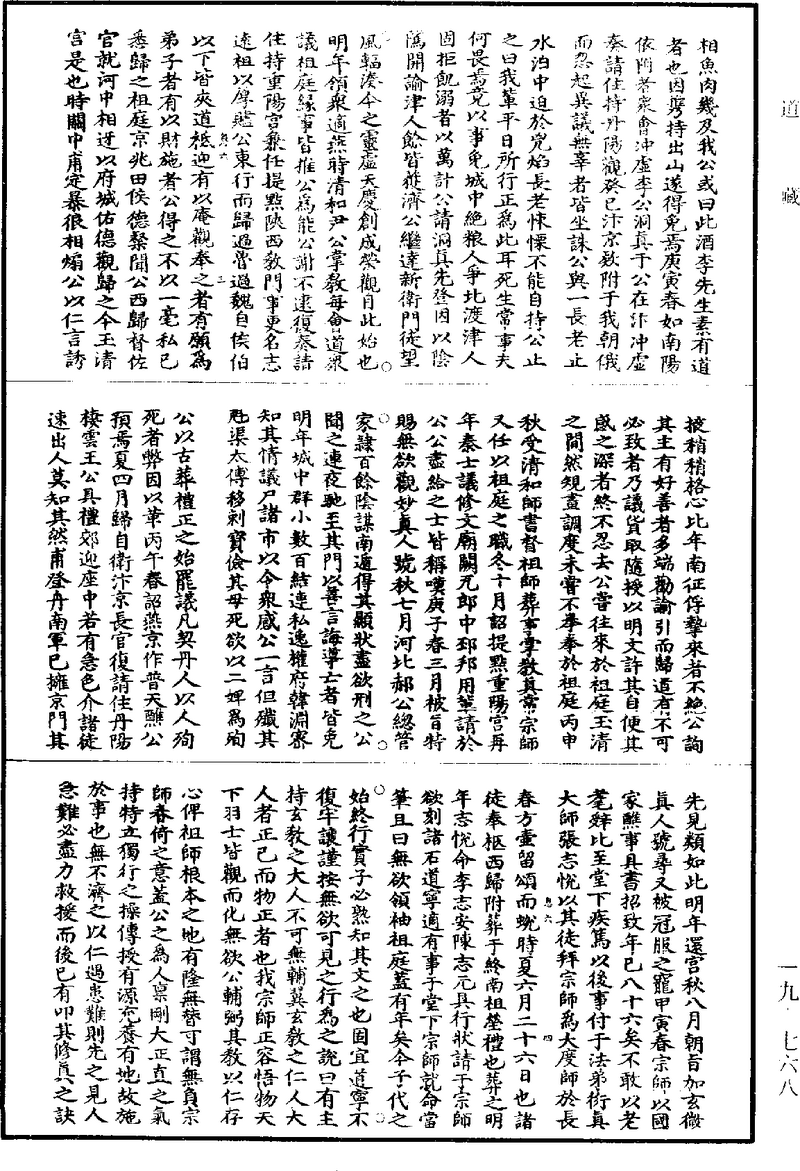 相魚肉幾及我公或曰此酒李先生素有道
者也因冎持出山遂得免焉庚寅春如南陽
依門者衆會冲虛李公洞真于公在汴冲虛
奏請住持丹陽觀癸巳汴京欵附于我朝俄
而忽起異議無辜者皆坐誅公與一長老止
水泊中迫於兇焰長老悚慄不能自持公止
之曰我輩平日所行正為此耳死生常事夫
何畏焉竟以事免城中絶粮人爭北渡津人
固拒飢溺者以萬計公請洞真先登因以陰
隲開諭津人餘皆獲濟公繼達新衛門徒望
風輻湊今之靈虛天慶創成榮觀自此始也
明年領衆適燕時清和尹公掌教每會道衆
議祖庭緣事皆推公為能公謝不逮復奏請
住持重陽宫兼任提點陝西教門事更名志
遠祖以厚贐公東行而歸過魯過魏自侯伯
以下皆夾道祗迎有以庵觀奉之者有願為
弟子者有以財施者公得之不以一毫私己
悉歸之祖庭京兆田侯德粲聞公西歸督佐
官就河中相迓以府城佑德觀歸之今玉清
宫是也時關中甫定暴很相煽公以仁言誘
披稍稍格心比年南征俘摯來者不絶公詢
其主有好善者多端勸諭引而歸道有不可
必致者乃議貨取隨授以明文許其自便其
感之深者終不忍去公嘗往來於祖庭玉清
之間然䂓畫調度未嘗不拳拳於祖庭丙申
秋受清和師書督祖師葬事掌教真常宗師
又任以祖庭之職冬十月詔提點重陽宫再
年秦士議修文廟闕元郎中邳邦用輩請於
公公盡給之士皆稱嘆庚子春三月被旨特
賜無欲觀妙真人號秋七月河北郝公總管
家隸百餘陰謀南遁得其顯狀盡欲刑之公
聞之連夜馳至其門以善言誨導亡者皆免
明年城中群小數百結連私逸權府韓淵審
知其情議尸諸市以令衆感公一言但殲其
魁渠太傅移剌寳儉其母死欲以二婢為殉
公以古葬禮正之始罷議凡契丹人以人殉
死者弊因以革丙午春詔燕京作普天醮公
預焉夏四月歸自衛汴京長官復請住丹陽
棲雲王公具禮郊迎座中若有急色介諸徒
速出人莫知其然甫登丹南軍已擁京門其
先見類如此明年還宫秋八月朝旨加玄微
真人號尋又被冠服之寵甲寅春宗師以國
家醮事具書招致年已八十六矣不敢以老
耄辭比至堂下疾篤以後事付于法弟衍真
大師張志悅以其徒拜宗師為大度師於長
春方壷留頌而蛻時夏六月二十六日也諸
徒奉柩西歸附葬于終南祖塋禮也葬之明
年志悅命李志安陳志元具行狀請于宗師
欲刻諸石道寧適有事于堂下宗師就命當
筆且曰無欲領袖祖庭蓋有年矣今子代之
始終行實子必熟知其文之也固宜道寧不
復牢讓謹按無欲可見之行為之說曰有主
持玄教之大人不可無輔翼玄教之仁人大
人者正己而物正者也我宗師正容悟物天
下羽士皆觀而化無欲公輔弼其教以仁存
心俾祖師根本之地有隆無替可謂無負宗
師春倚之意蓋公之為人稟剛大正直之氣
持特立獨行之操傳授有源充養有地故施
於事也無不濟之以仁過患難則先之見人
急難必盡力救援而後已有叩其修真之訣
道藏
一九·七六八